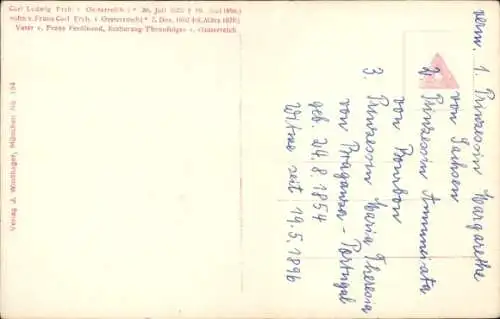 Carl Ludwig Erzh. v. Oesterreich
Sohn v. Franz Carl Erzh. v. Oesterreich
Vater v. Franz Ferdinand, Erzherzog-Thronfolger v. Oesterreich
Verlag J. Windhager, München No. 194
verm. 1. Prinzessin Margarethe
von Sachsen
2. Prinzessin Annunciata
von Bourbon
3. Prinzessin Maria Theresia
von Braganza - Portugal
geb. 24.8.1854
Witwe seit 19.5.1896